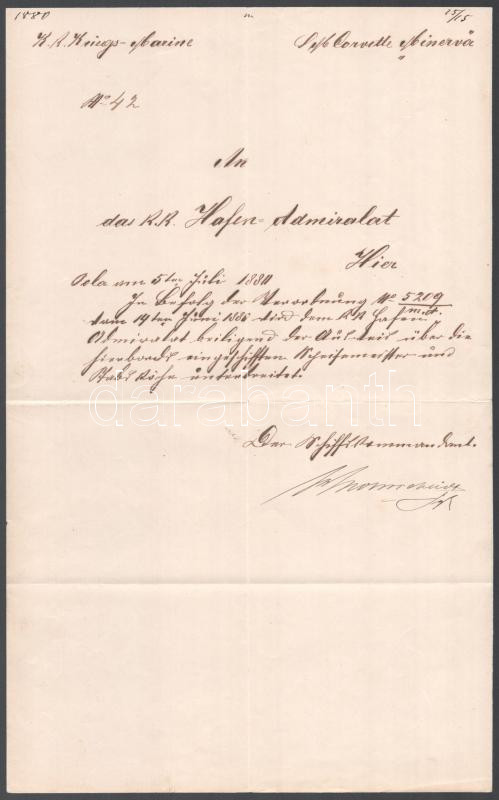 1880 15/15
K. K. Kriegs-Marine S.M. Corvette „Minerva“
No 42
An
das K. K. Hafen-Admiralat
Hier
Pola am 5ten Juli 1880
In Befolg der Verordnung No 5209/m.A.
vom 14ten Juni 1880 wird dem K. K. Hafen-
Admiralat beiliegend der Ausweis über die
hierbords eingeschifften und
Stabsköche unterbreitet.
Der Schiffskommandant.
darabanth